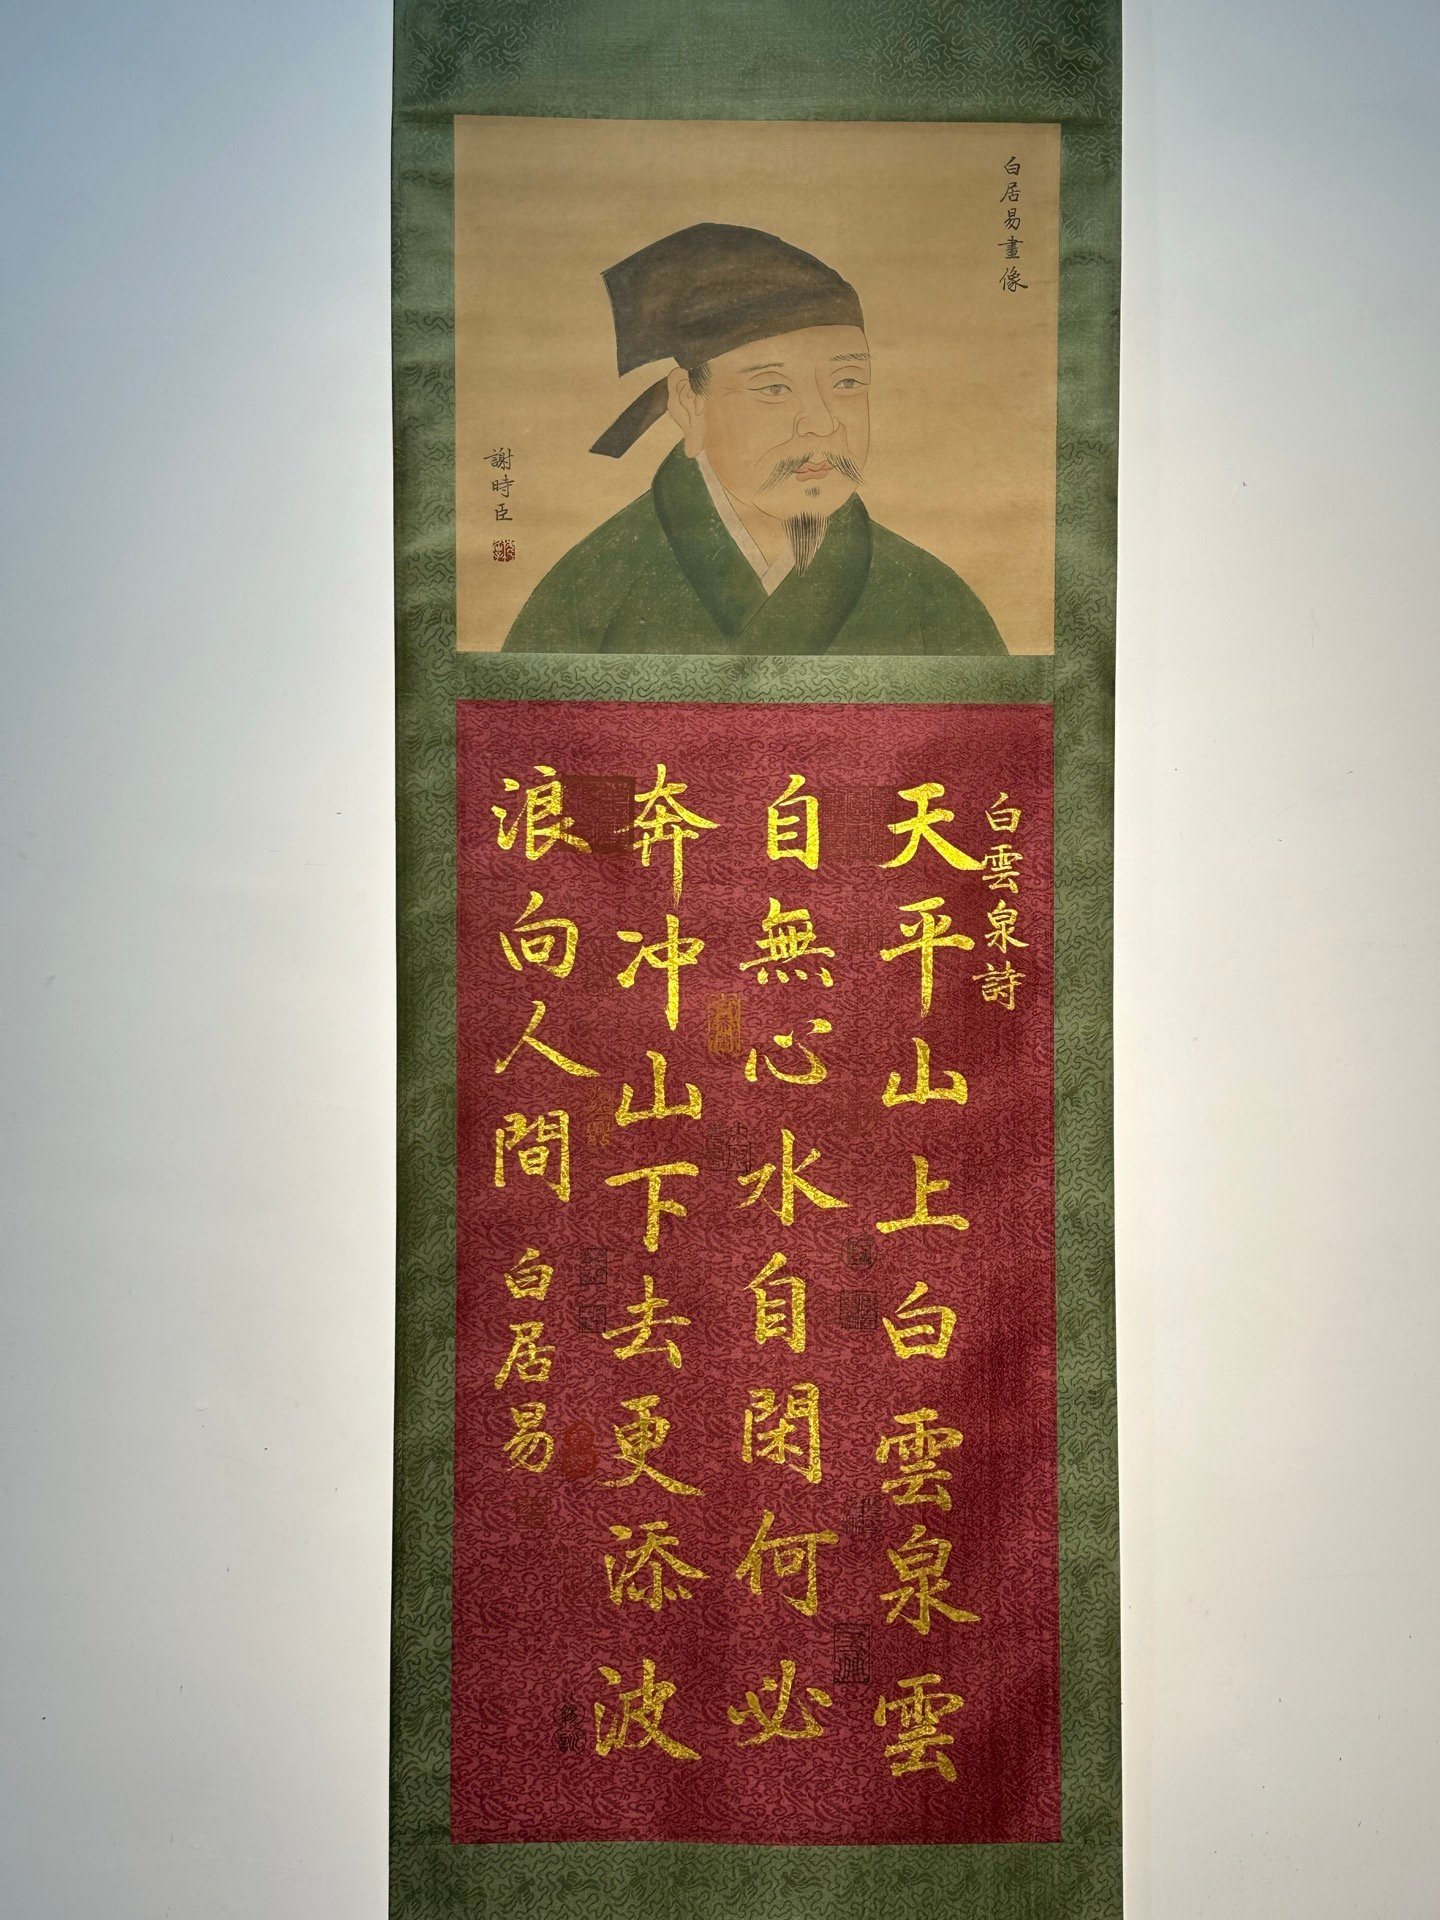 白居易畫像
謝時臣
白雲泉詩
天平山上白雲泉雲
自無心水自閑何必
奔冲山下去更添波
浪向人間
白居易